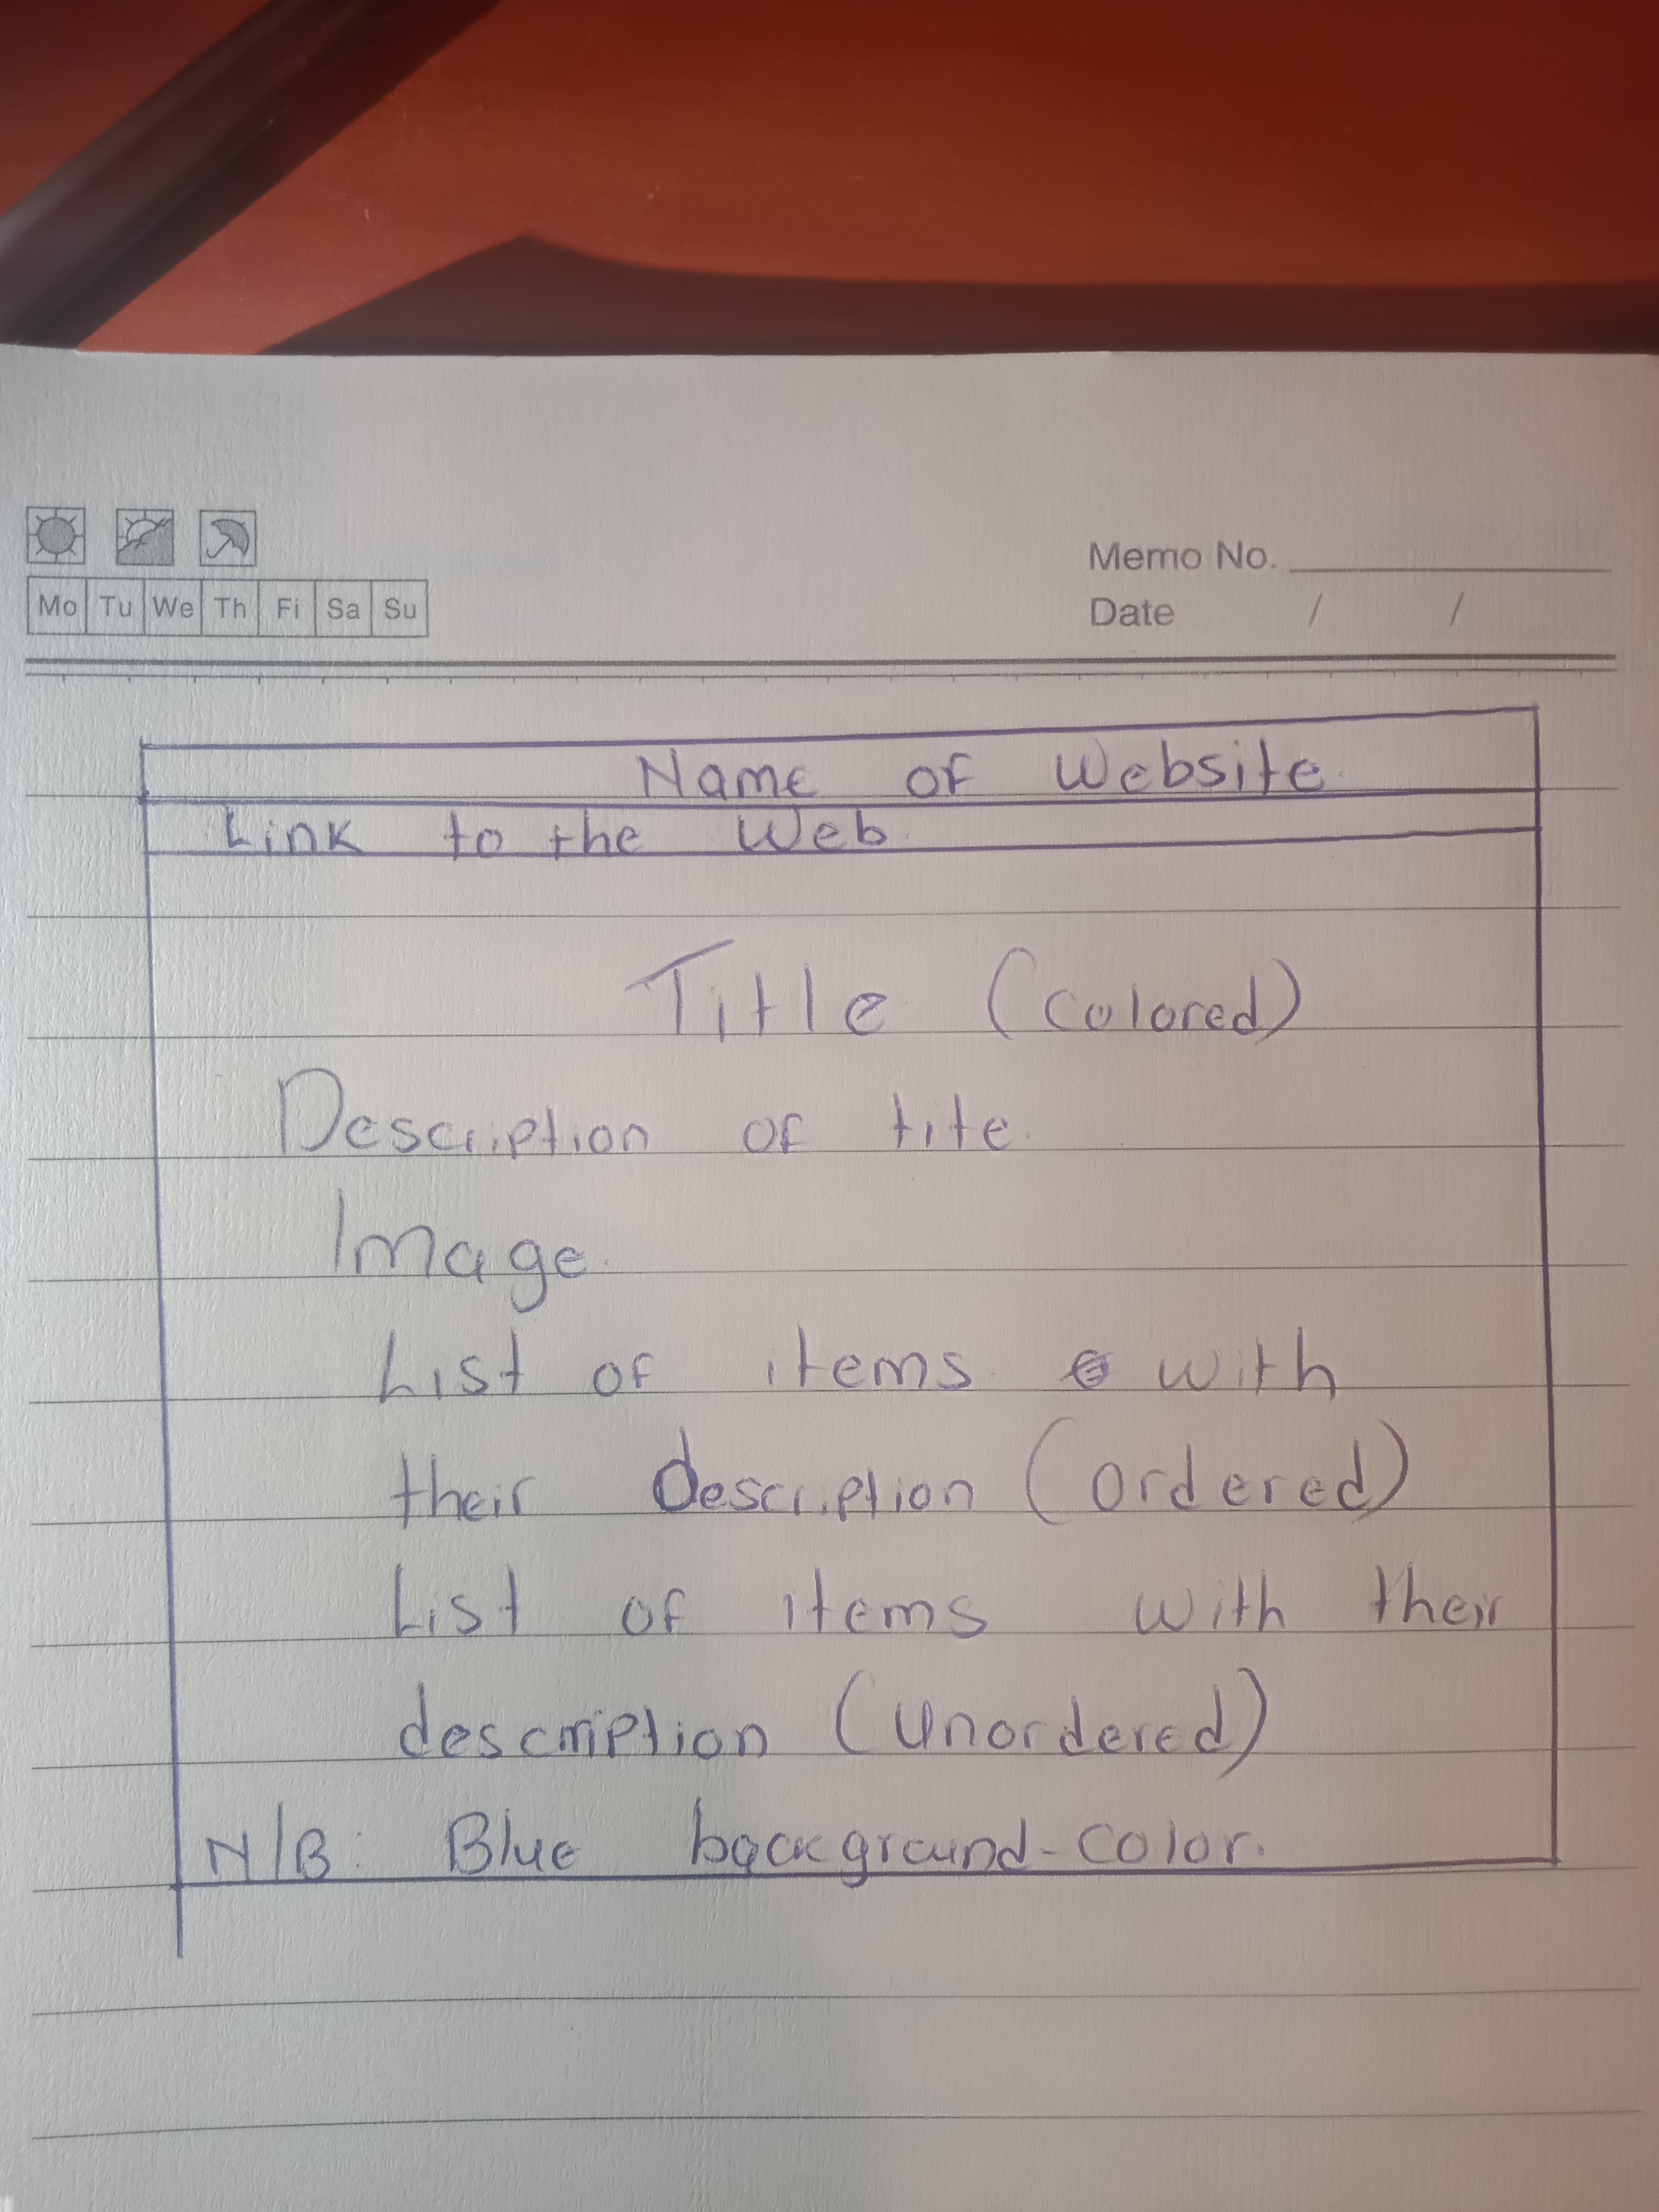 Mo Tu We Th Fi Sa Su
Memo No.
Date / /
Name of Website
Link to the Web.
Title (colored)
Description of tite.
Image.
List of items with
their description (ordered)
List of items with their
description (unordered)
N/B: Blue background-color.